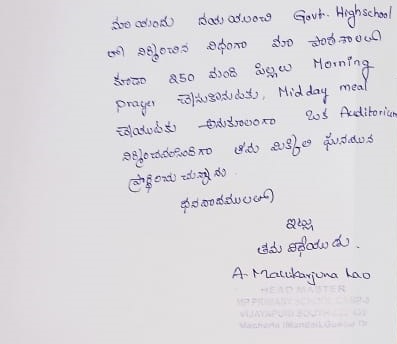 మరియుదు దయయుంచి Govt. Highschool
లో నిర్మించిన విధంగా మా పాఠశాలలో
కూడా 250 మంది పిల్లలు Morning
prayer చేసుకొనుటకు, Midday meal
చేయుటకు అనుకూలంగా ఒక Auditorium
నిర్మించవలసిందిగా తమకు మిక్కిలి ఘనమున
ప్రార్థించు చున్నాను.
ధన్యవాదములతో
ఇట్లు
తమ విధేయుడు.
A. Mallikarjuna Rao
HEAD MASTER
MP PRIMARY SCHOOL
VIJAYAPURI SOUTH
Macherla (Mandal), Guntur Dt